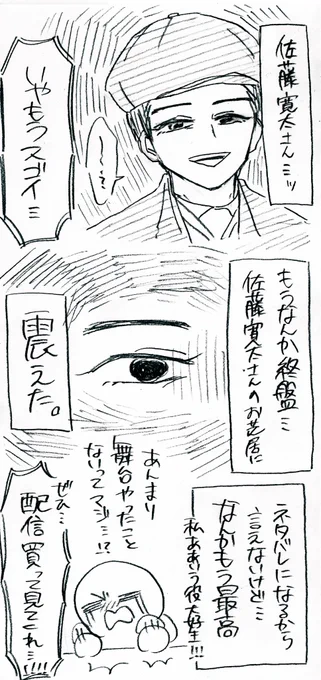 佐藤寛太さんミッ
〜〜?
いやもうスゴイミ
もうなんか終盤…
佐藤寛太さんのお芝居に
震えた。
ネタバレになるから
言えないけど…
なんかもう最高
私ああいう役大好生!!!
あんまり
舞台やったこと
ないってマジ…!?
ぜひ…
配信買って見てくれ…!!!!